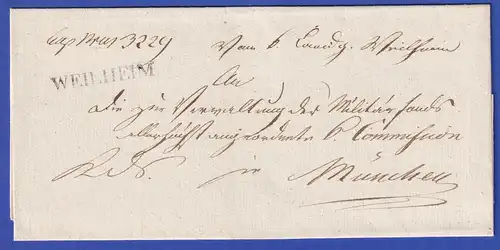 Exp Nrus 3229 Vom k. Landg. Weilheim
WEILHEIM
An
Die zur Verwaltung des Militär fonds
allerhöchst angeordnete k. Commission
R. S. in München